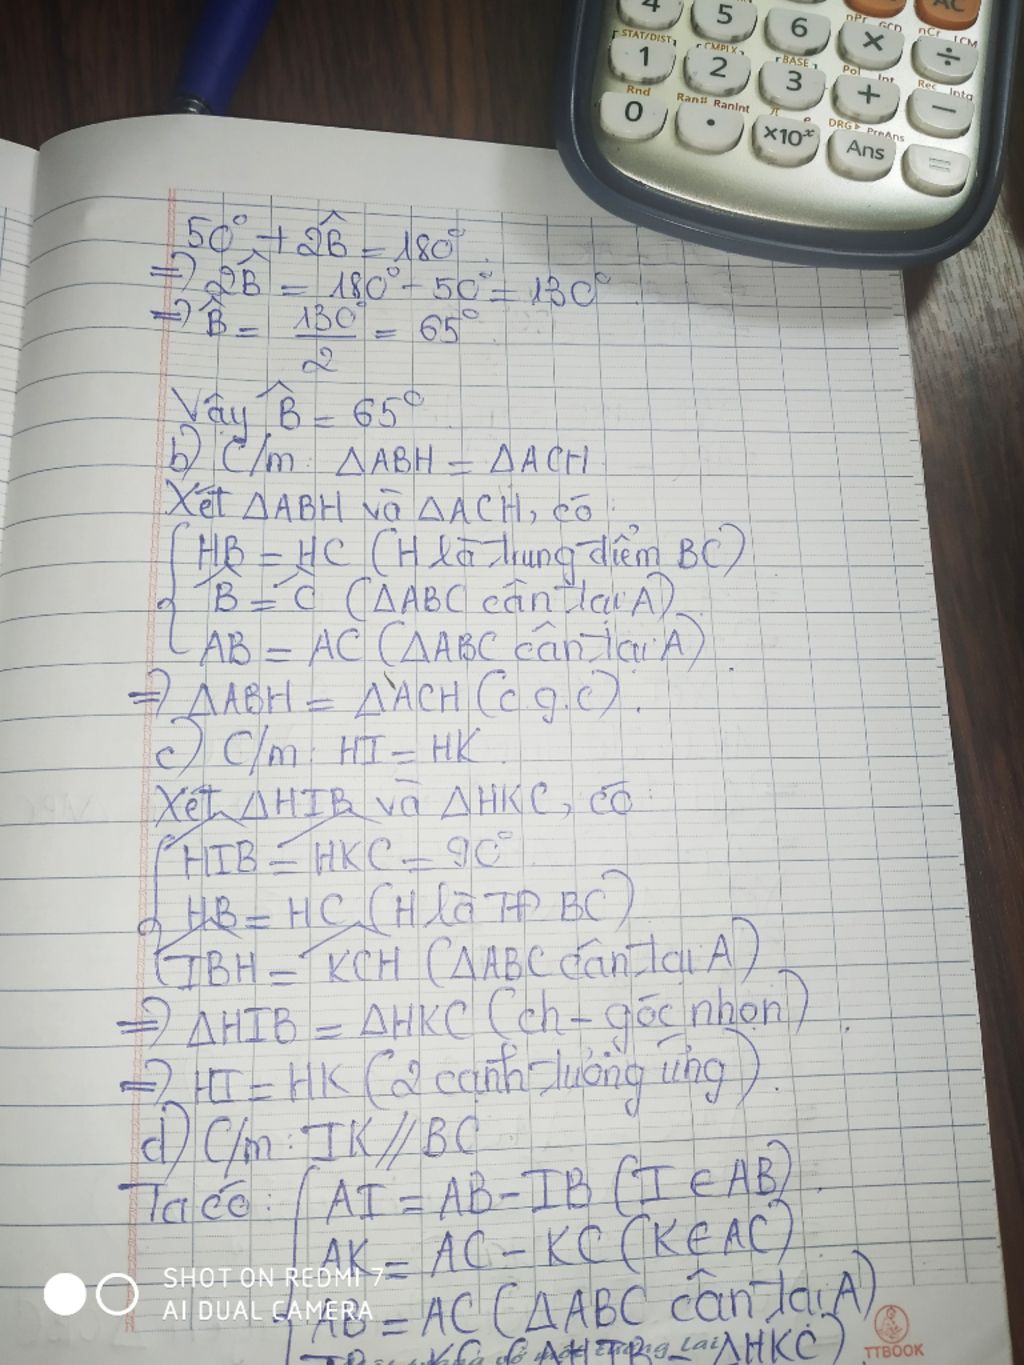 4
5
6
nPr GCD
nCr LCM
AC
×
÷
STAT/DIST
CMPLX
BASE
Pol Int
Rec Intg
1
2
3
+
−
Rnd
Ran# RanInt
π e
DRG▸ PreAns
0
•
×10ˣ
Ans
=
50° + 2B̂ = 180°.
=> 2B̂ = 180° - 50° = 130°
=> B̂ = 130°/2 = 65°.
Vậy B̂ = 65°.
b) C/m: ΔABH = ΔACH
Xét ΔABH và ΔACH, có:
HB = HC (H là trung điểm BC)
B̂ = Ĉ (ΔABC cân tại A)
AB = AC (ΔABC cân tại A).
=> ΔABH = ΔACH (c.g.c).
c) C/m: HI = HK.
Xét ΔHIB và ΔHKC, có:
HIB = HKC = 90°
HB = HC (H là TĐ BC)
IBH = KCH (ΔABC cân tại A)
=> ΔHIB = ΔHKC (ch - góc nhọn).
=> HI = HK (2 cạnh tương ứng).
d) C/m: IK // BC
Ta có: AI = AB - IB (I ∈ AB).
AK = AC - KC (K ∈ AC)
AB = AC (ΔABC cân tại A)
IB = KC (ΔHIB = ΔHKC)
SHOT ON REDMI 7
AI DUAL CAMERA
TTBOOK